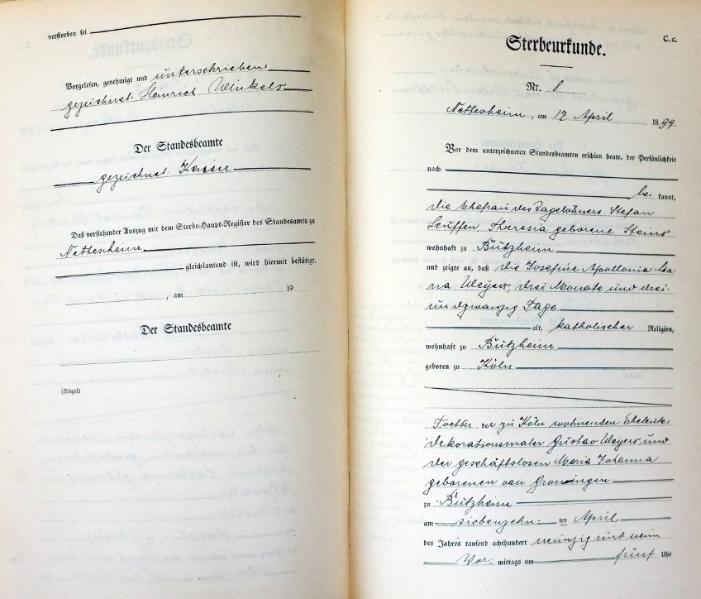 verstorben sei
Vorgelesen, genehmigt und unterschrieben
gezeichnet. Heinrich Winkels
Der Standesbeamte
gezeichnet. Kaiser
Daß vorstehender Auszug mit dem Sterbe-Haupt-Register des Standesamts zu
Nettesheim
gleichlautend ist, wird hiermit bestätigt.
, am 19
Der Standesbeamte
(Siegel)
C. c.
Sterbeurkunde.
Nr. 8
Nettesheim, am 17 April 1899.
Vor dem unterzeichneten Standesbeamten erschien heute, der Persönlichkeit
nach
be kannt,
die Ehefrau des Tagelöhners Stefan
Leuffen, Theresia geborene Steins
wohnhaft zu Bützheim
und zeigte an, daß die Josefine Apollonia
Weyers, drei Monate und drei
und zwanzig Tage
alt, katholischer Religion,
wohnhaft zu Bützheim
geboren zu Köln
Tochter der zu Köln wohnenden Eheleute,
Dekorationsmaler Gustav Weyers und
der geschäftslosen Maria Johanna
geborenen van Groningen
zu Bützheim
am siebenzehn- ten April
des Jahres tausend achthundert neunzig und neun
Vor- mittags um fünf Uhr